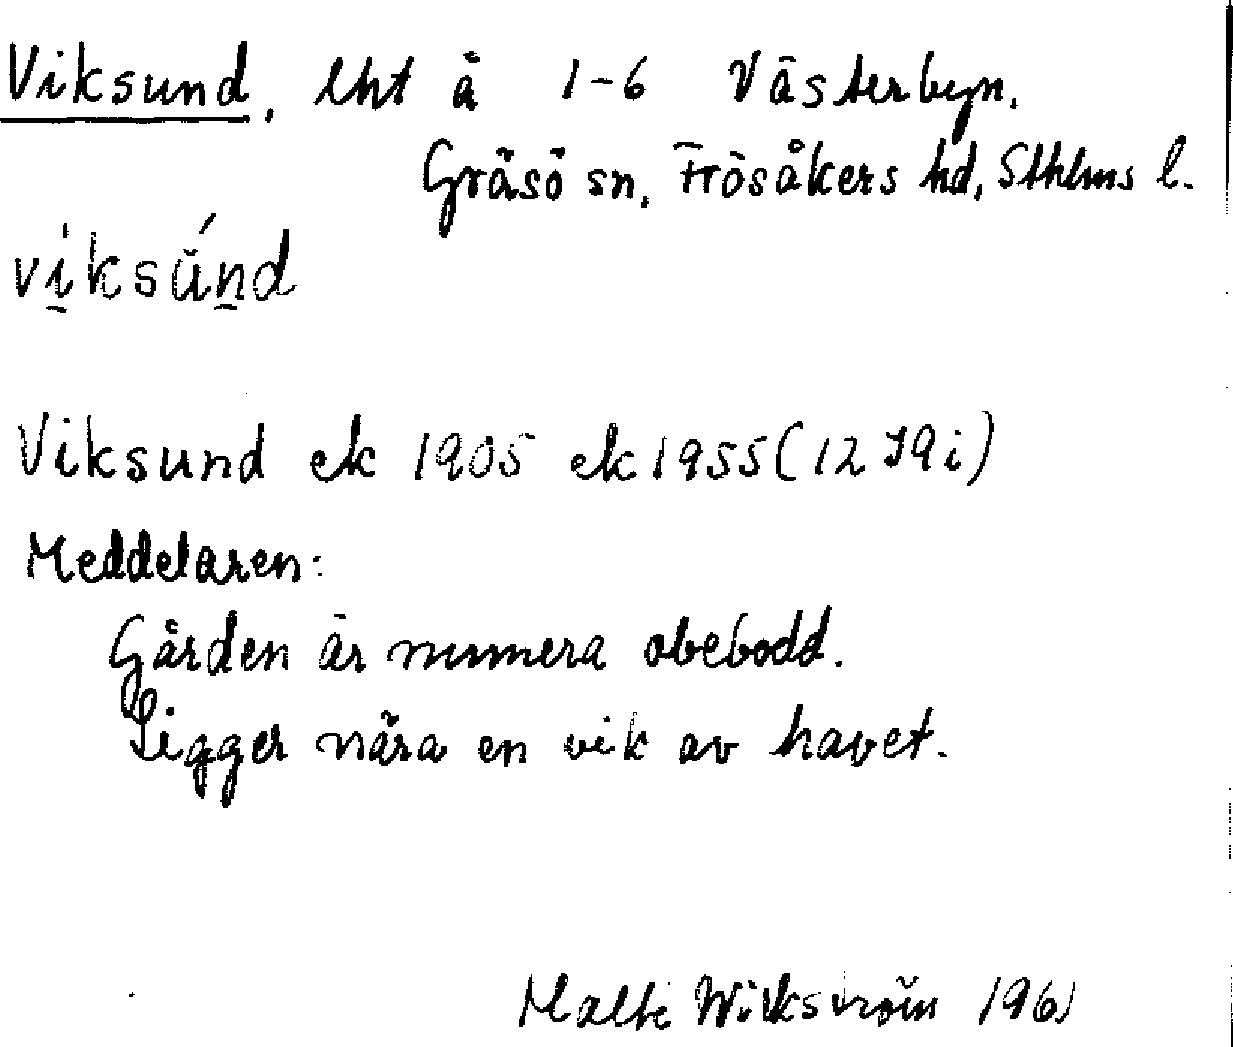 Viksund, lht å 1-6 Västerbyn.
Gräsö sn, Frösåkers hd, Sthlms l.
viksúnd
Viksund ek 1905 ek 1955 (12 I 9 i)
Meddelaren:
Gården är numera obebodd.
Ligger nära en vik av havet.
Malte Wikström 1961